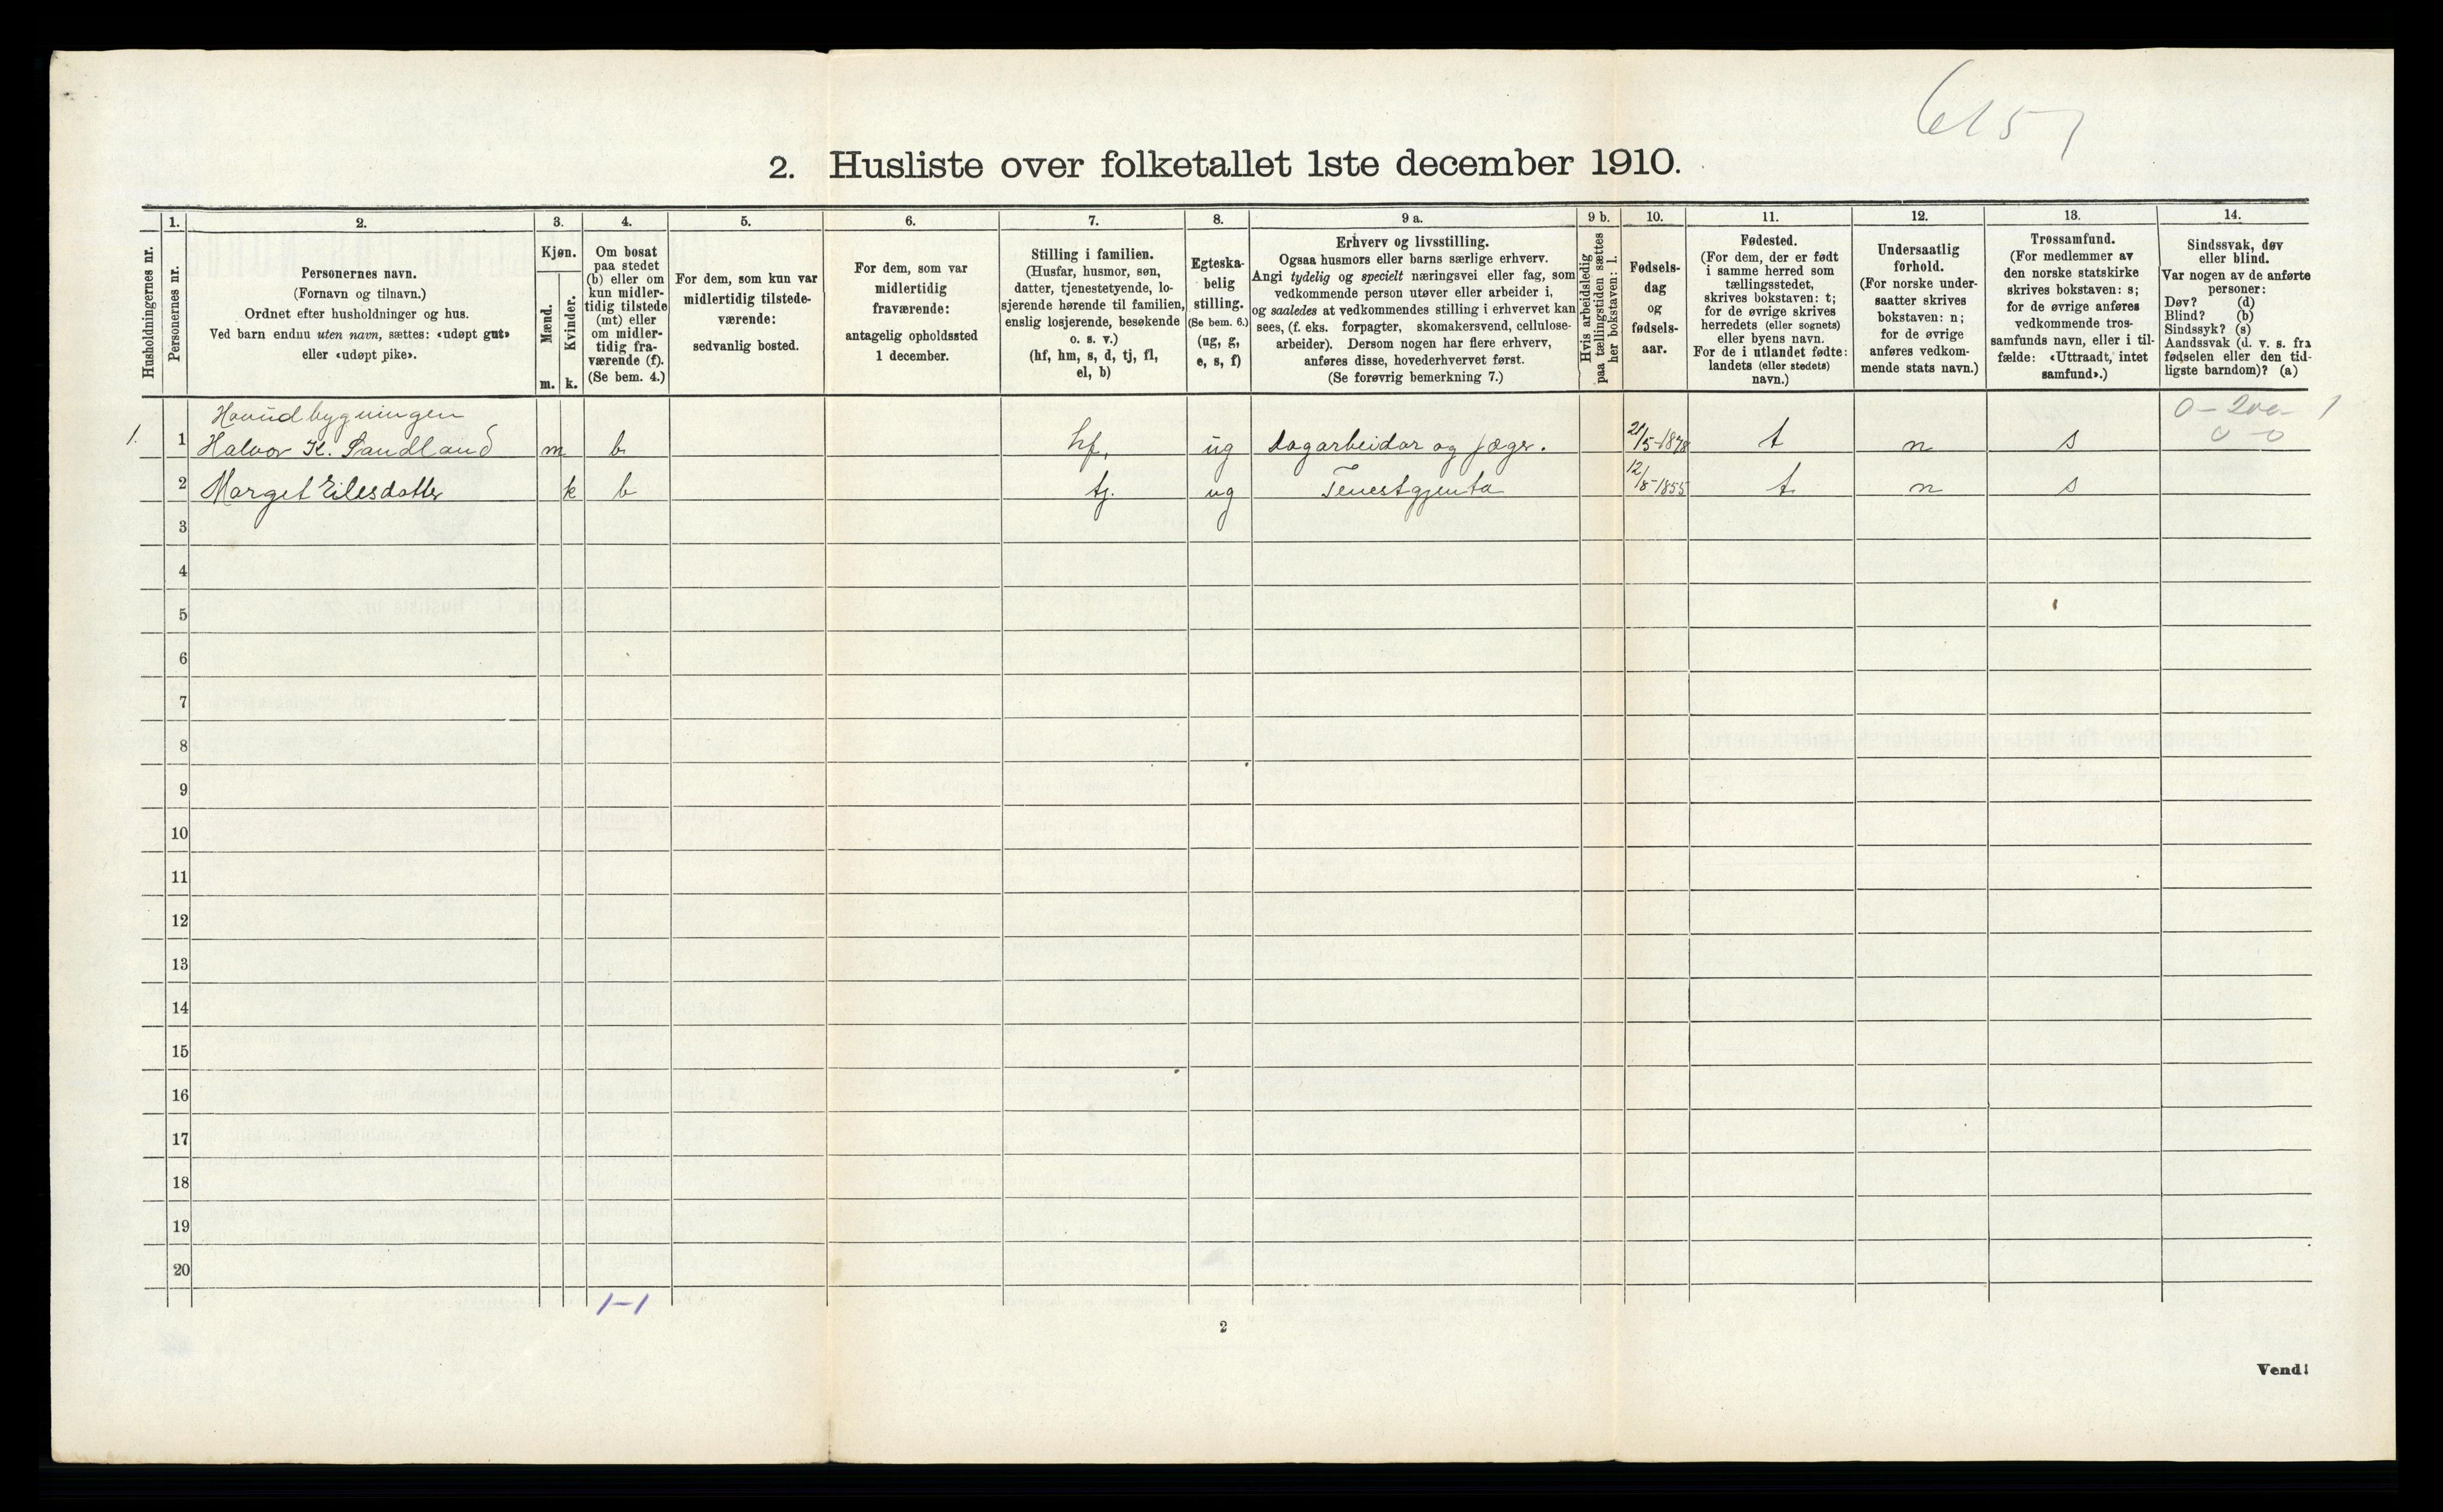 6151
2. Husliste over folketallet 1ste december 1910.
Husholdningernes nr.
1.
Personernes nr.
2.
Personernes navn.
(Fornavn og tilnavn.)
Ordnet efter husholdninger og hus.
Ved barn endnu uten navn, sættes: «udøpt gut»
eller «udøpt pike».
3.
Kjøn.
Mænd.
m.
Kvinder.
k.
4.
Om bosat
paa stedet
(b) eller om
kun midler-
tidig tilstede
(mt) eller
om midler-
tidig fra-
værende (f).
(Se bem. 4.)
5.
For dem, som kun var
midlertidig tilstede-
værende:
sedvanlig bosted.
6.
For dem, som var
midlertidig
fraværende:
antagelig opholdssted
1 december.
7.
Stilling i familien.
(Husfar, husmor, søn,
datter, tjenestetyende, lo-
sjerende hørende til familien,
enslig losjerende, besøkende
o. s. v.)
(hf, hm, s, d, tj, fl,
el, b)
8.
Egteska-
belig
stilling.
(Se bem. 6.)
(ug, g,
e, s, f)
9 a.
Erhverv og livsstilling.
Ogsaa husmors eller barns særlige erhverv.
Angi tydelig og specielt næringsvei eller fag, som
vedkommende person utøver eller arbeider i,
og saaledes at vedkommendes stilling i erhvervet kan
sees, (f. eks. forpagter, skomakersvend, cellulose-
arbeider). Dersom nogen har flere erhverv,
anføres disse, hovederhvervet først.
(Se forøvrig bemerkning 7.)
9 b.
Hvis arbeidsledig
paa tællingstiden sættes
her bokstaven: l.
10.
Fødsels-
dag
og
fødsels-
aar.
11.
Fødested.
(For dem, der er født
i samme herred som
tællingsstedet,
skrives bokstaven: t;
for de øvrige skrives
herredets (eller sognets)
eller byens navn.
For de i utlandet fødte:
landets (eller stedets)
navn.)
12.
Undersaatlig
forhold.
(For norske under-
saatter skrives
bokstaven: n;
for de øvrige
anføres vedkom-
mende stats navn.)
13.
Trossamfund.
(For medlemmer av
den norske statskirke
skrives bokstaven: s;
for de øvrige anføres
vedkommende tros-
samfunds navn, eller i til-
fælde: «Uttraadt, intet
samfund».)
14.
Sindssvak, døv
eller blind.
Var nogen av de anførte
personer:
Døv? (d)
Blind? (b)
Sindssyk? (s)
Aandssvak (d. v. s. fra
fødselen eller den tid-
ligste barndom)? (a)
Hovudbygningen
1. 1 Halvor K. Sandland m b hf, ug dagarbeidar og jæger. 21/5-1878 t n s
0 - 0
2 Marget Eilesdatter k b tj. ug Tenestgjenta 12/8-1855 t n s
3
4
5
6
7
8
9
10
11
12
13
14
15
16
17
18
19
20
1-1
2
Vend!